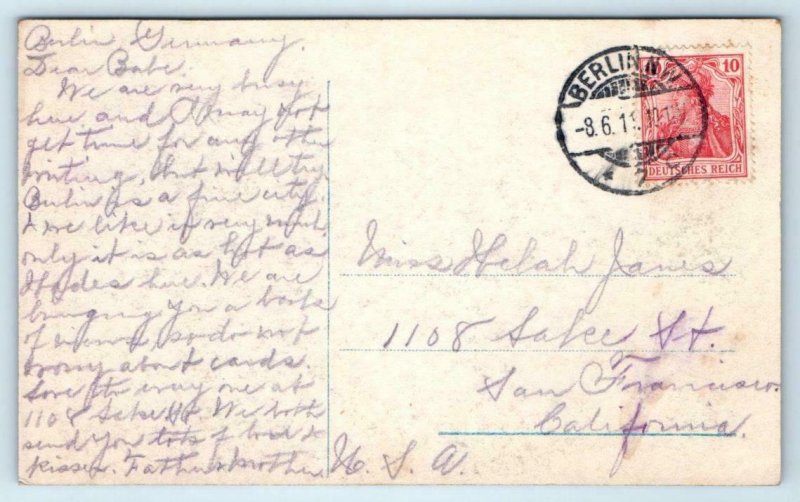 Berlin Germany.
Dear Babe.
We are very busy
here and I may not
get time for any other
writing, but will try
Berlin is a fine city.
& we like it very much
only it is as hot as
Hades here. We are
bringing you a book
of views, so do not
worry about cards.
Love to every one at
1108 Lake St. We both
send you lots of love &
kisses. Father & Mother
BERLIN NW
-8.6.11. 10-11
7
10
DEUTSCHES REICH
Miss Helah Janes
1108 Lake St.
San Francisco.
California.
U. S. A.